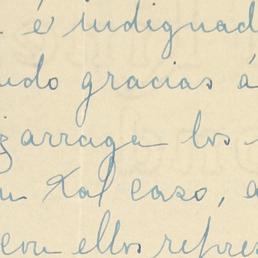 é indignad
udo gracias á
zarraga los
n tal caso, a
con ellos repres